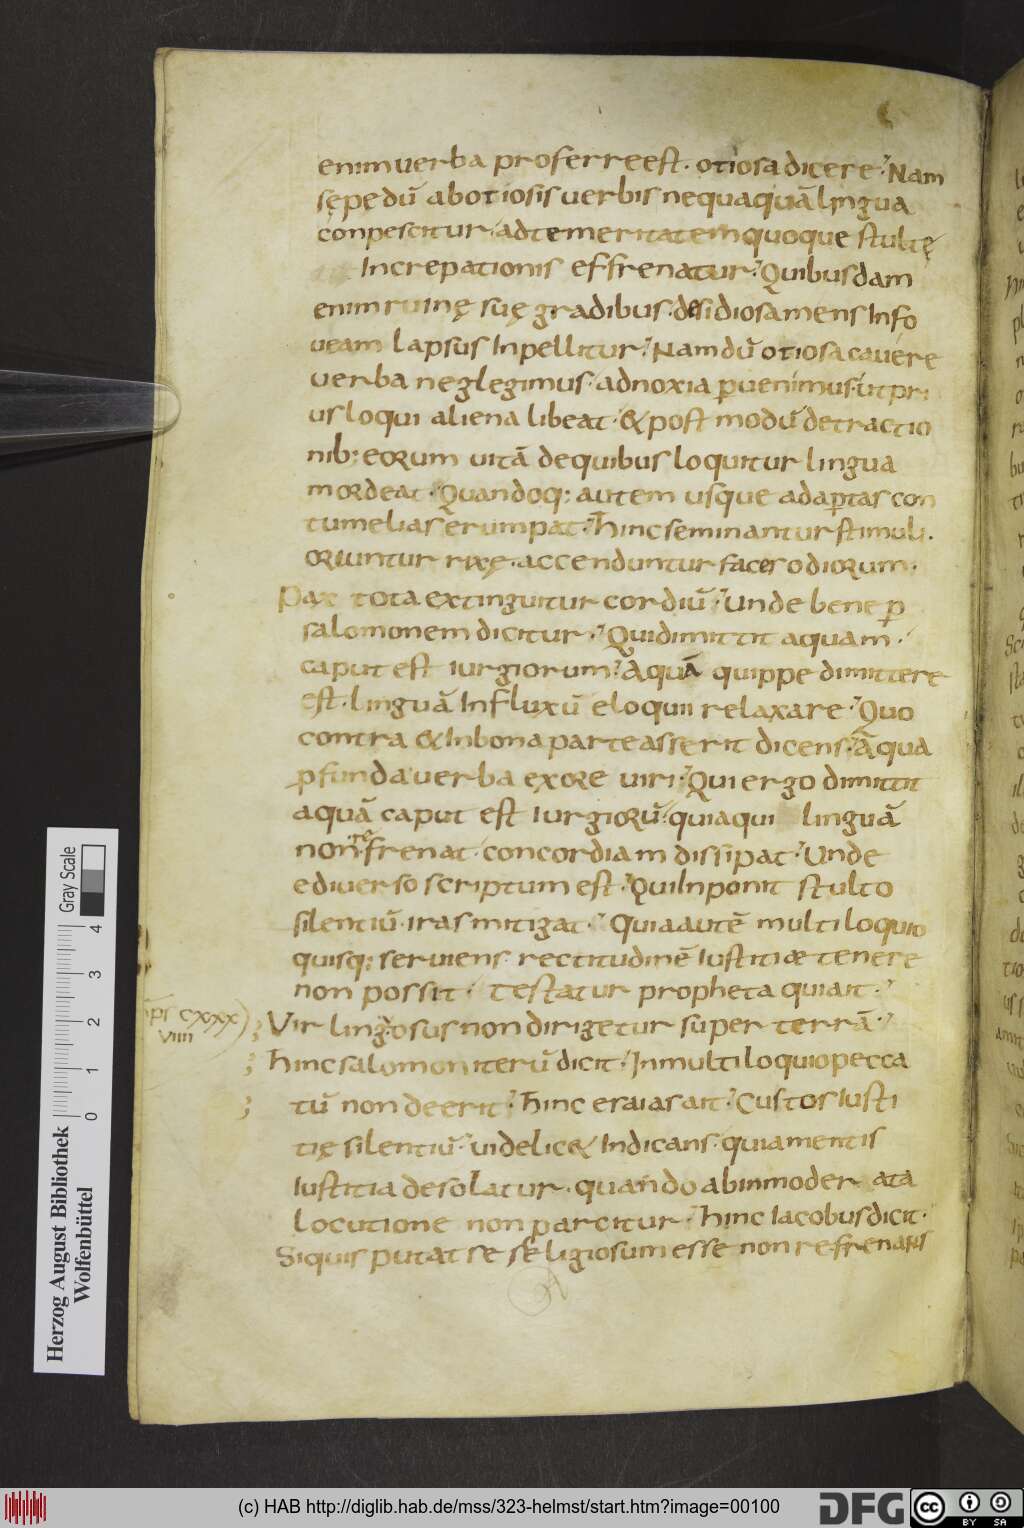 enim verba proferre est. otiosa dicere. Nam
sępe dū ab otiosis verbis nequaquā lingua
conpescitur. ad temeritatem quoque stultę
Increpationis effrenatur. Quibusdam
enim ruinę suę gradibus. desidiosa mens In fo
ueam lapsus Inpellitur. Nam dū otiosa cauere
verba neglegimus. ad noxia ꝑuenimus. ut pri
us loqui aliena libeat. & post modū detractio
nib: eorum uitā de quibus loquitur lingua
mordeat. Quandoq: autem usque ad aꝑtas con
tumelias erumpat. hinc seminantur stimuli.
oriuntur rixę. accenduntur faces odiorum.
Pax tota extinguitur cordiū. Unde bene ꝑ
salomonem dicitur. Qui dimittit aquam.
caput est iurgiorum. Aquā quippe dimittere
est. linguā In fluxū eloquii relaxare. Quo
contra & In bona parte asserit dicens. Aqua
ꝓfunda verba ex ore viri. Qui ergo dimittit
aquā caput est Iurgiorū. quia qui linguā
non refrenat. concordiam dissipat. Unde
e diverso scriptum est. Qui Inponit stulto
silentiū. iras mitigat. Quia autē multiloquio
quisq: serviens. rectitudinē Iustitiæ tenere
non possit. testatur propheta qui ait.
ps CXXX
VIIII
Vir linguosus non dirigetur super terrā.
hinc salomon iterū dicit. In multiloquio pecca
tū non deerit. hinc esaias ait. Custos Iusti
tię silentiū. videlic& Indicans. quia mentis
Iustitia desolatur. quando ab inmoderata
locutione non parcitur. hinc Iacobus dicit.
Si quis putat se religiosum esse non refrenans
Herzog August Bibliothek
Wolfenbüttel
Gray Scale
0 1 2 3 4
(c) HAB http://diglib.hab.de/mss/323-helmst/start.htm?image=00100
DFG
cc
BY SA